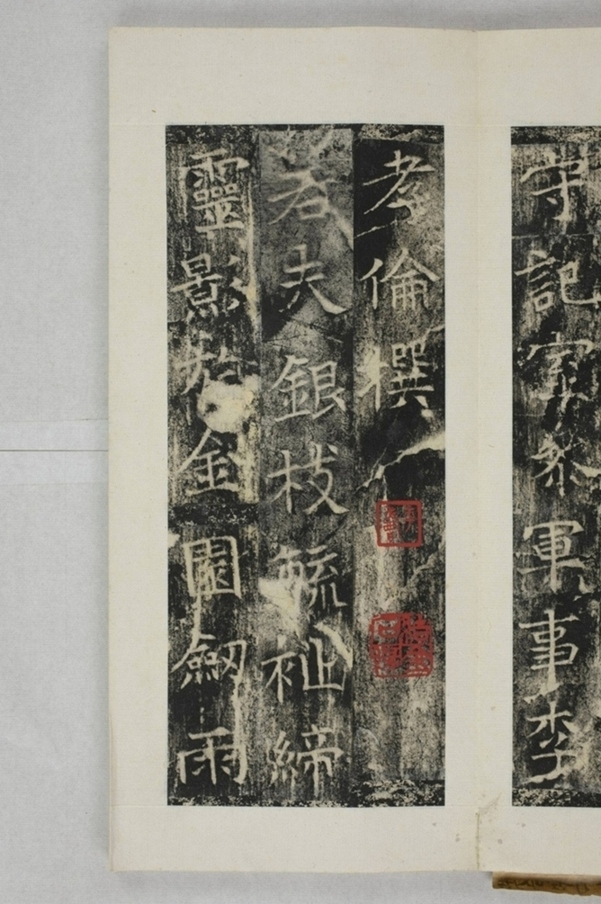 守記室叅軍事李
孝倫撰
若夫銀枝毓祉締
靈影於金園劒雨